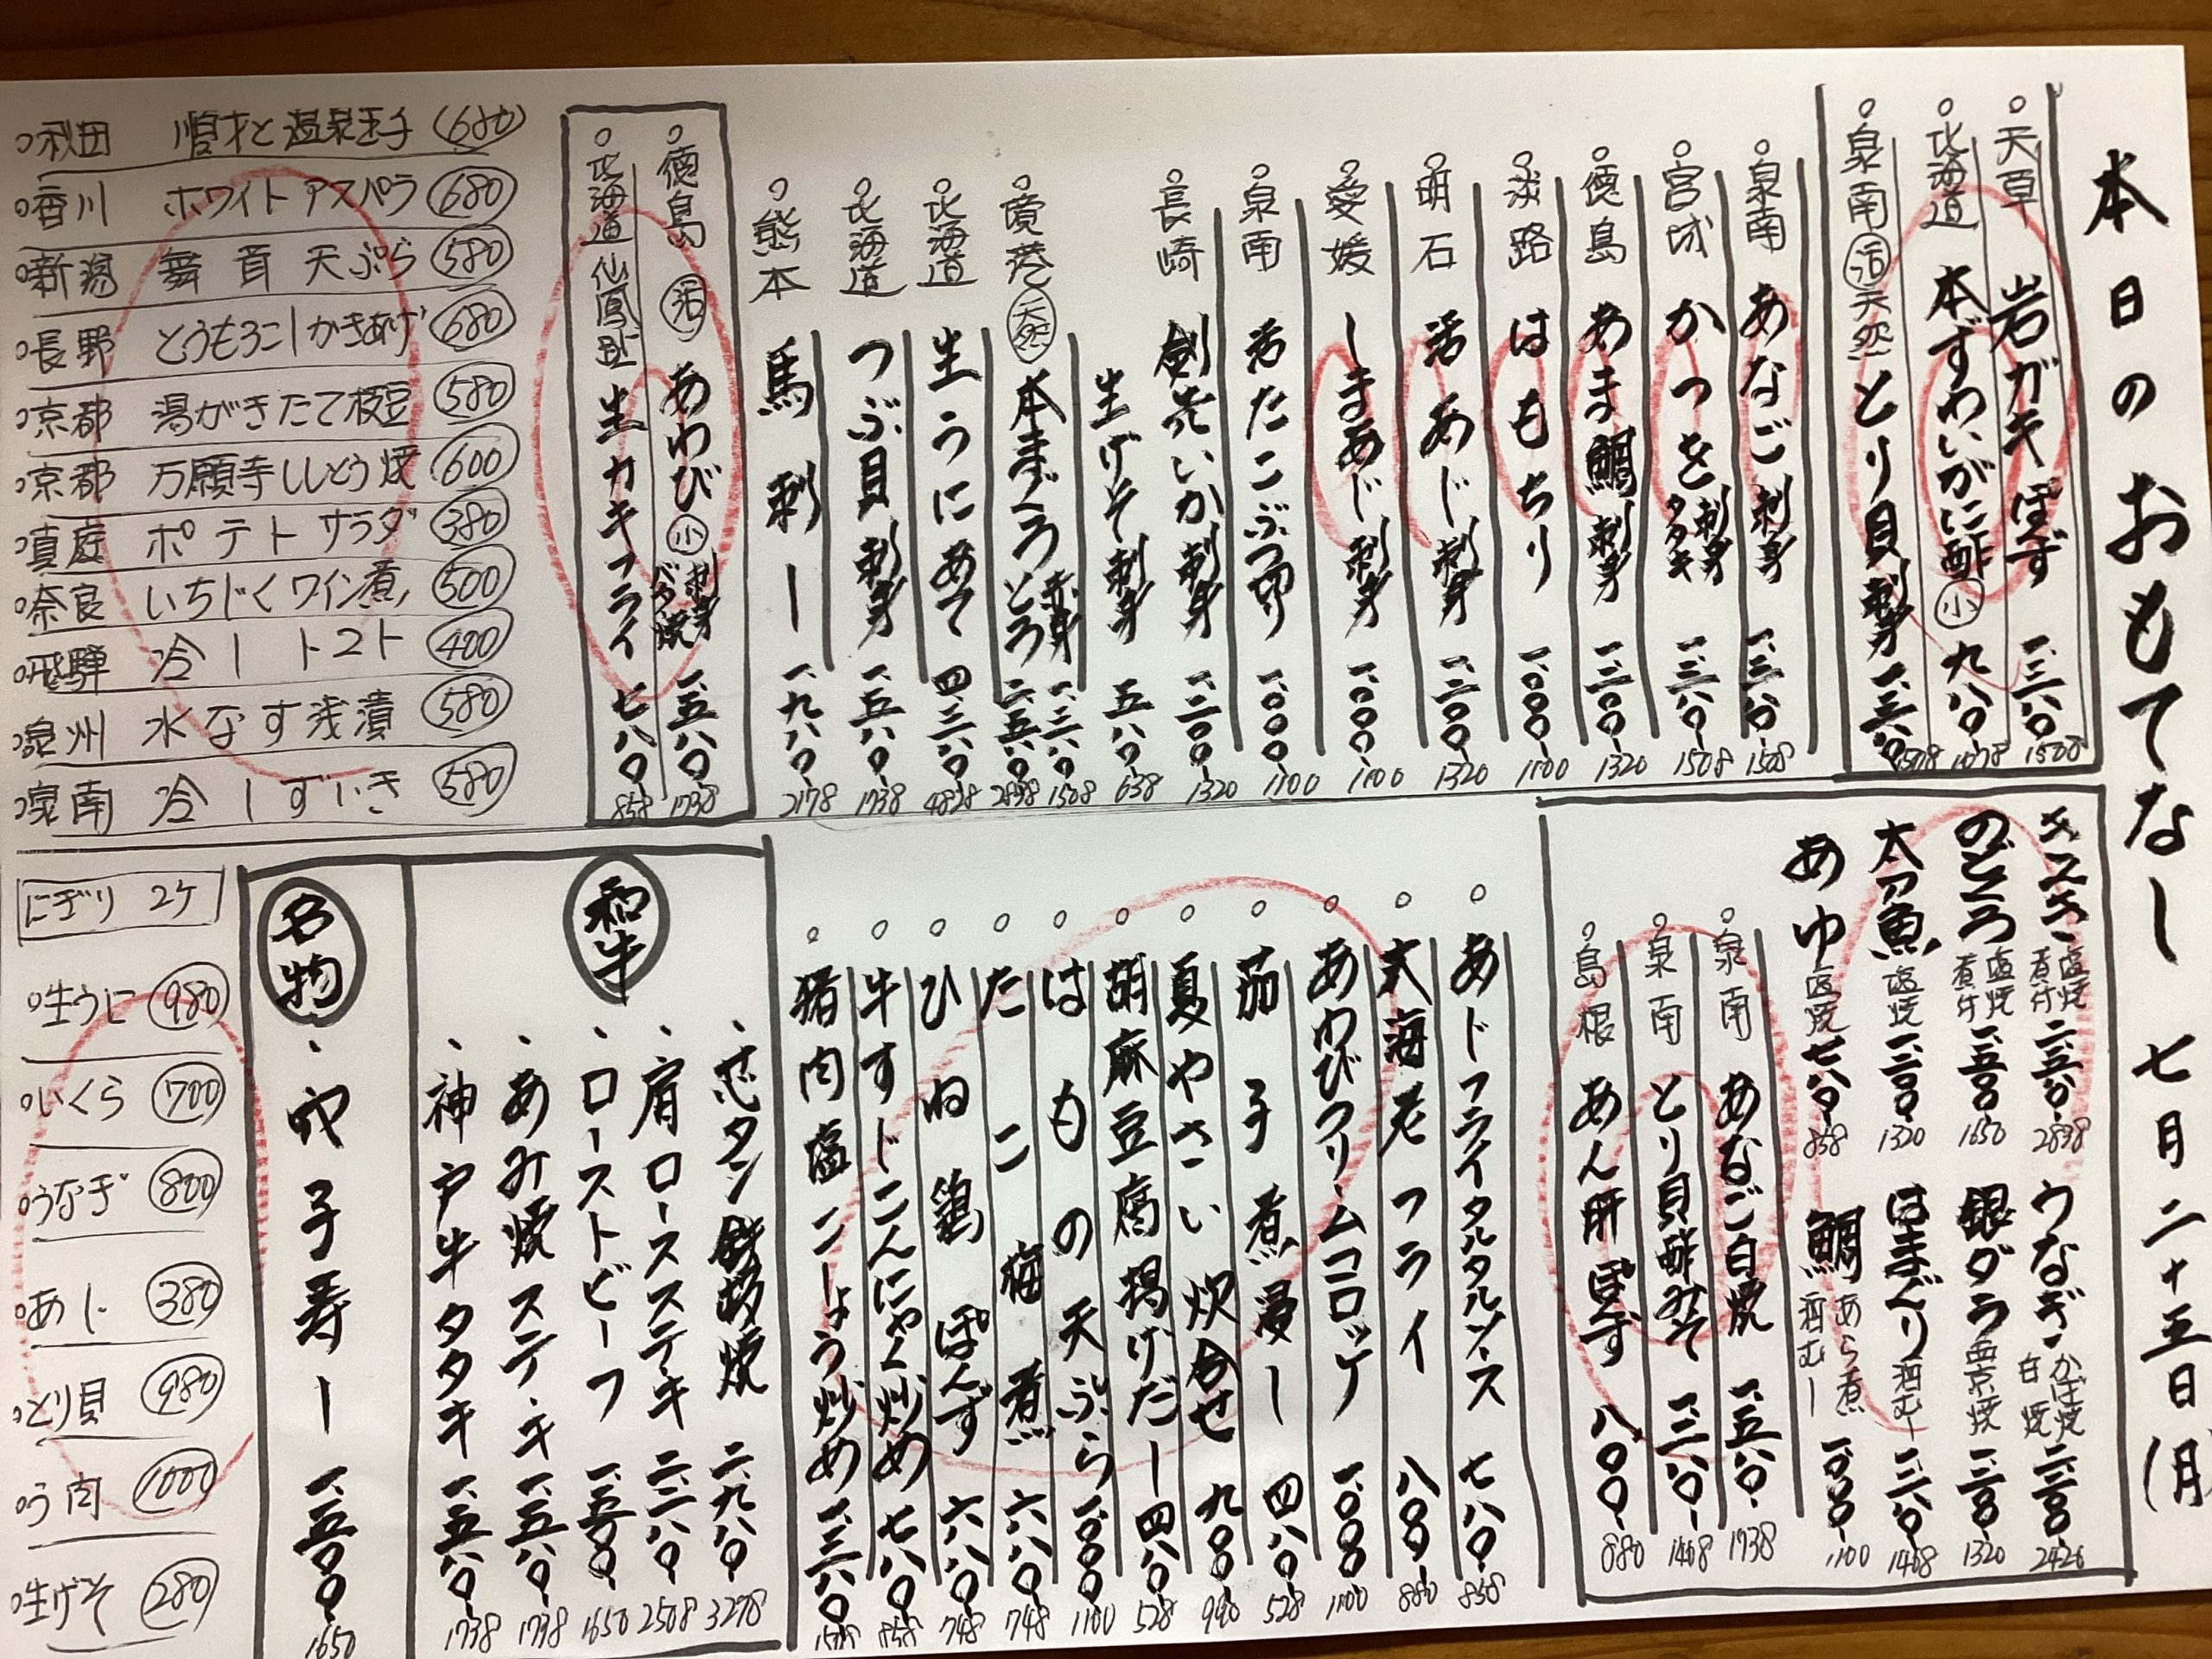 本日のおもてなし 七月二十五日(月)
天草 岩ガキぽず 一、三八〇 1508
北海道 本ずわいがに酢 小 九八〇 1078
泉南 活 天然 とり貝 刺身
泉南 あなご 刺身 1508
宮城 かつを 刺身 タタキ 一、三八〇 1508
徳島 あま鯛 刺身 一、二〇〇 1320
淡路 はもちり 一、〇〇〇 1100
明石 活あじ 刺身 一、二〇〇 1320
愛媛 しまあじ 刺身 一、〇〇〇 1100
泉南 活たこぶつ切り 一、〇〇〇 1100
長崎 剣先いか 刺身 一、二〇〇 1320
生げそ 刺身 五八〇 638
境港 天然 本まぐろ 赤身 一、三八〇 1508
とろ 2838
北海道 生うにあて 四、三八〇 4828
北海道 つぶ貝 刺身 一、五八〇 1738
熊本 馬刺し 一、九八〇 2178
徳島 活 あわび 小 刺身 一、五八〇 1738
北海道 仙鳳趾 生カキフライ 七八〇 858
秋田 順才と温泉玉子 680
香川 ホワイトアスパラ 680
新潟 舞茸天ぷら 580
長野 とうもろこしかきあげ 680
京都 湯がきたて枝豆 580
京都 万願寺ししとう焼 600
真庭 ポテトサラダ 380
奈良 いちじくワイン煮 500
飛騨 冷しトマト 400
泉州 水なす浅漬 580
泉南 冷しずいき 580
塩焼 煮付
のどぐろ 塩焼 煮付 一、五〇〇 1650
太刀魚 塩焼 一、二〇〇 1320
あゆ 塩焼 七八〇 858
うなぎ かば焼 白焼
銀ダラ 西京焼 一、二〇〇 1320
はまぐり 酒むし 1408
鯛 あら煮 酒むし 一、〇〇〇 1100
泉南 あなご白焼 一、五八〇 1738
泉南 とり貝酢みそ 1408
島根 あん肝ぽず 八〇〇 880
あじフライタルタルソース 七八〇 858
大海老フライ 八〇〇 880
あわびクリームコロッケ 一、〇〇〇 1100
茄子煮浸し 四八〇 528
夏やさい炊合せ 九〇〇 990
胡麻豆腐揚げだし 四八〇 528
はもの天ぷら 一、〇〇〇 1100
たこ梅煮 六八〇 748
ひね鶏ぽんず 六八〇 748
牛すじこんにゃく炒め 七八〇 858
猪肉塩こしょう炒め
和牛
芯タン鉄板焼 二、九八〇 3278
肩ロースステーキ 二、二八〇 2508
ローストビーフ 一、五〇〇 1650
あみ焼ステーキ 一、五八〇 1738
神戸牛タタキ 一、五八〇 1738
名物
穴子寿し 一、五〇〇 1650
にぎり 2ケ
生うに 980
いくら 700
うなぎ 800
あじ 380
とり貝 980
う肉 1000
生げそ 280